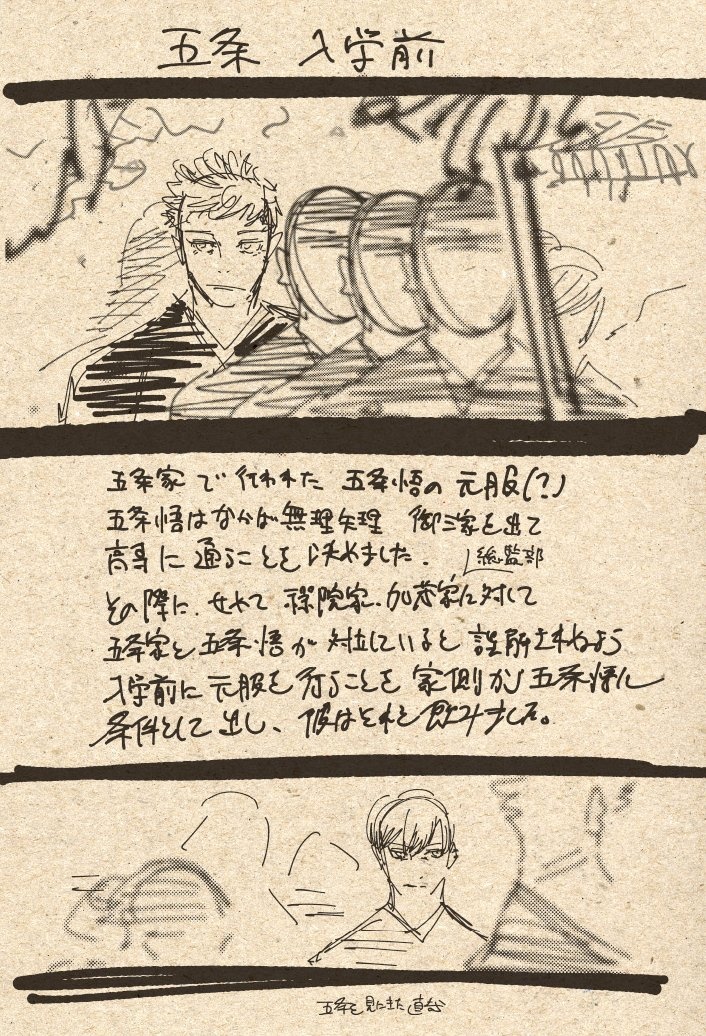 五条 入学前
五条家で行われた 五条悟の元服(?)
五条悟はなかば無理矢理 御三家を出て
高専に通ることを決めました.
総監部
その際に、せめて 禪院家、加茂家に対して
五条家と五条悟が対立していると誤解されぬよう
入学前に元服を行うことを家側が五条悟に
条件として出し、彼はそれを飲みました。
五条を見にきた直哉